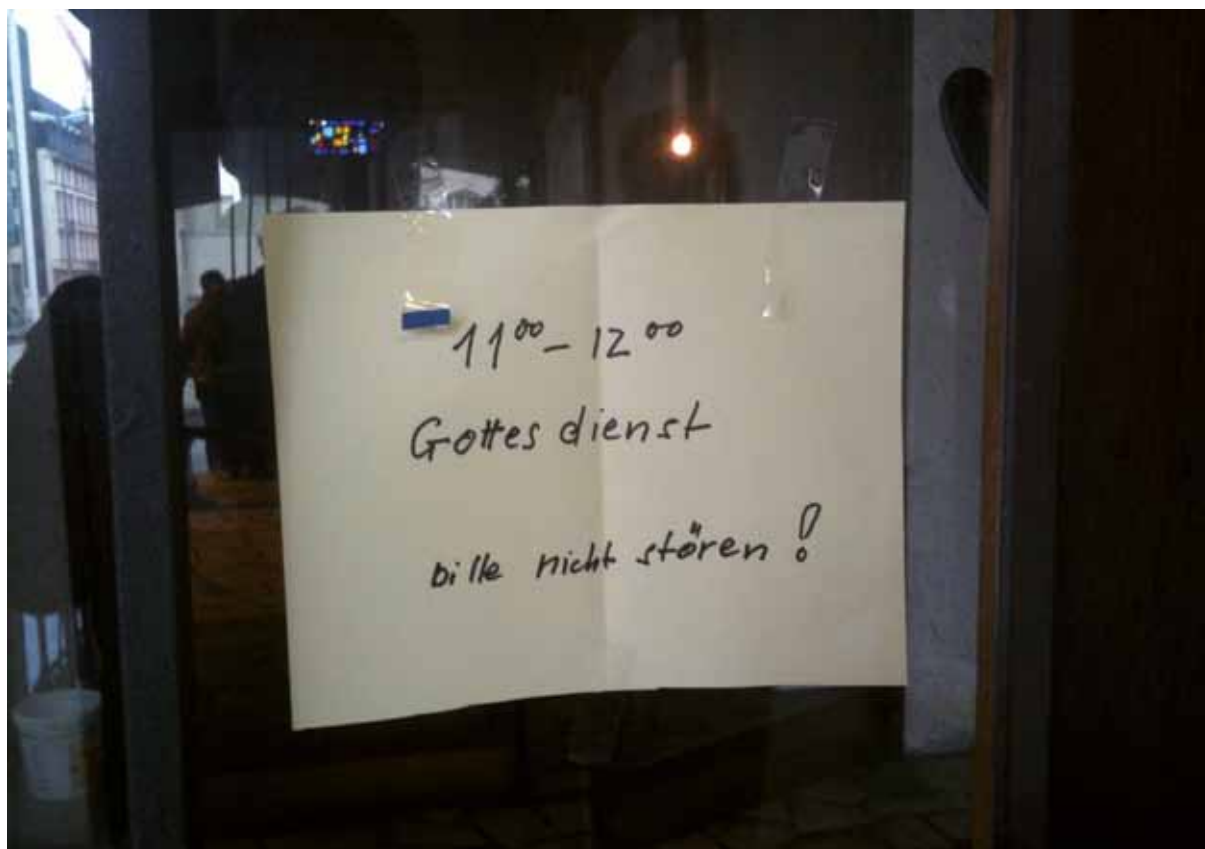 11⁰⁰ – 12⁰⁰
Gottesdienst
bitte nicht stören!